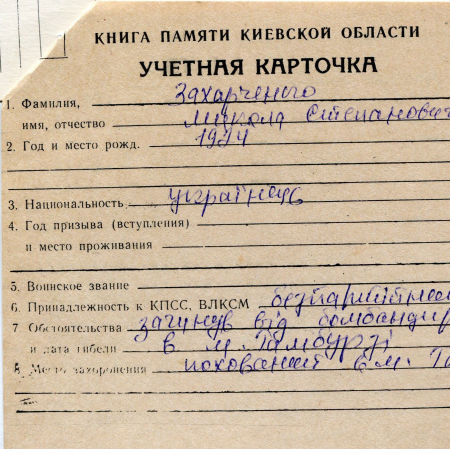 КНИГА ПАМЯТИ КИЕВСКОЙ ОБЛАСТИ
УЧЕТНАЯ КАРТОЧКА
1. Фамилия, Захарченко
имя, отчество Микола Степанович
2. Год и место рожд. 1924
3. Национальность українець
4. Год призыва (вступления)
и место проживания
5. Воинское звание
6. Принадлежность к КПСС, ВЛКСМ безпартійний
7 Обстоятельства загинув від бомбандир
и дата гибели в м. Гамбурзі
8. Место захоронения похований в м. Га